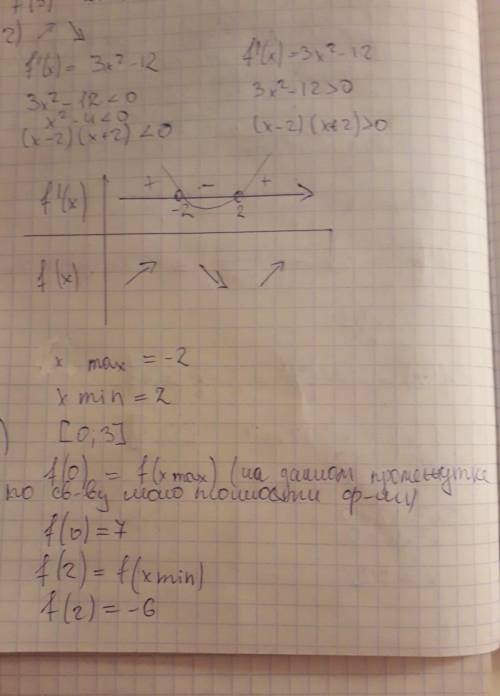 2) ↗ ↘
f'(x) = 3x²-12
3x²-12<0
x²-4<0
(x-2)(x+2)<0
f'(x)=3x²-12
3x²-12>0
(x-2)(x+2)>0
f'(x) + - +
-2 2
f(x) ↗ ↘ ↗
x max = -2
x min = 2
) [0;3]
f(0) = f(x max) (на данном промежутке
по св-ву монотонности ф-ии)
f(0)=7
f(2)=f(x min)
f(2)=-6